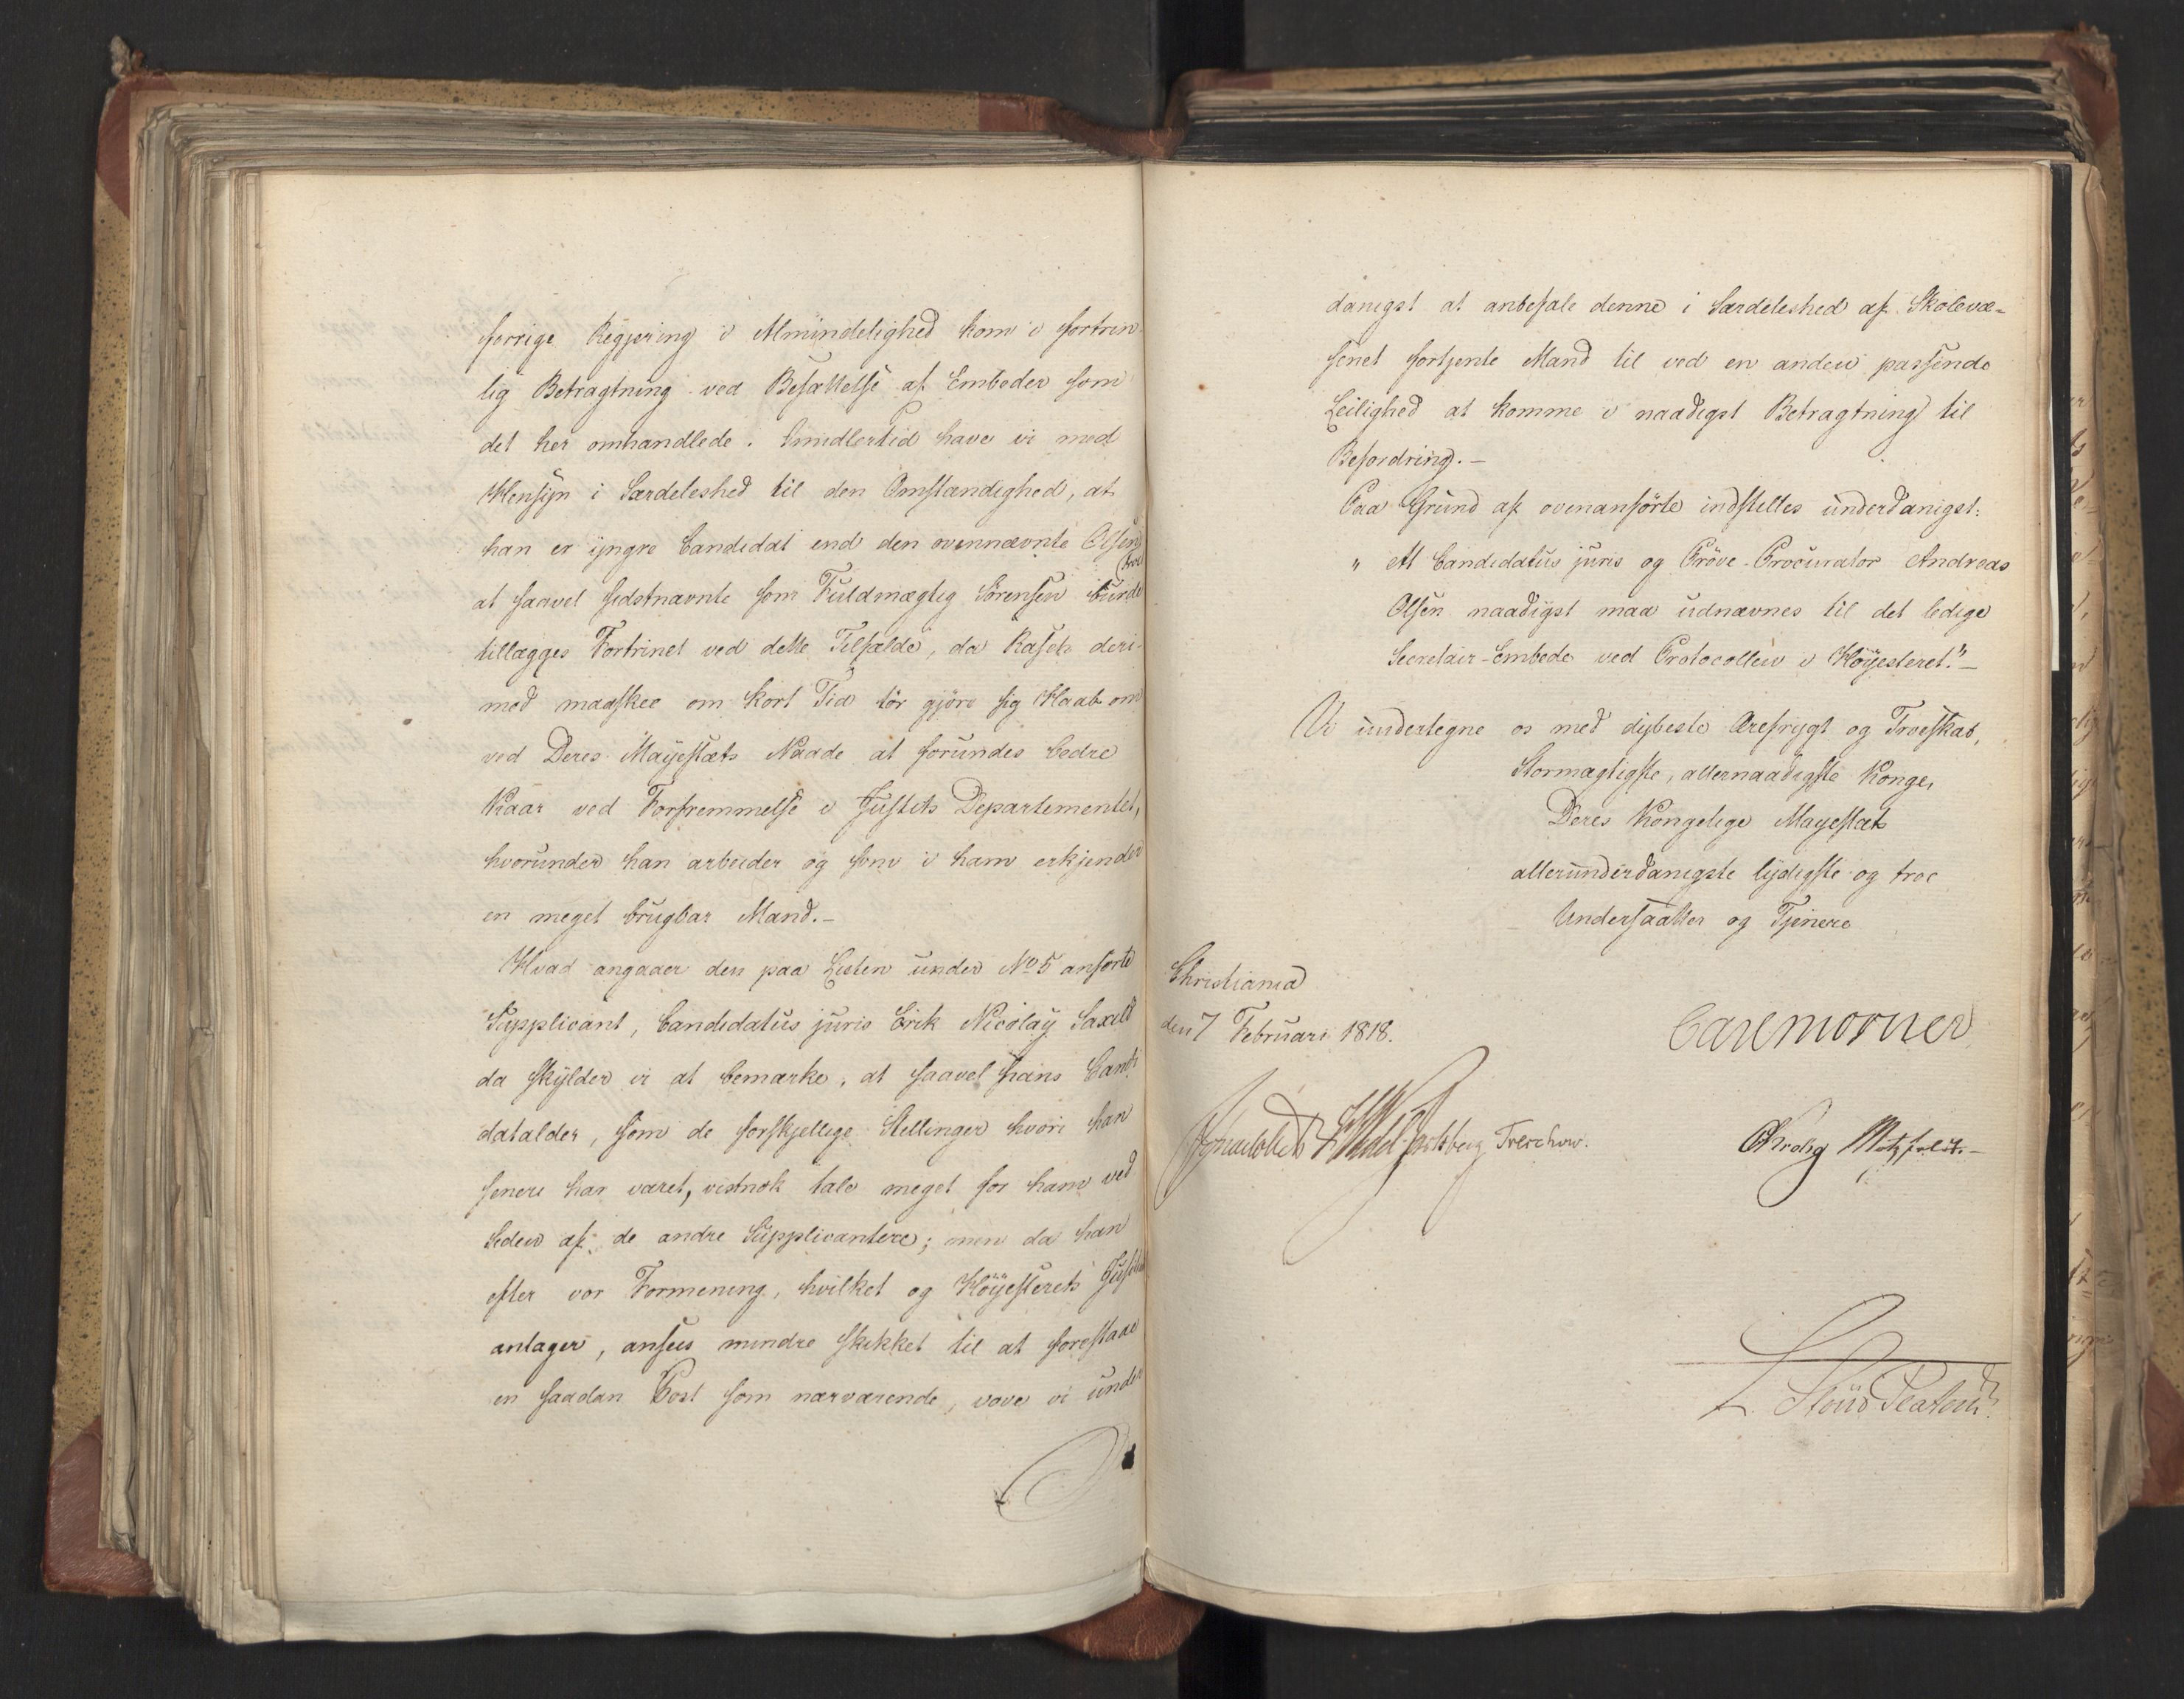 forrige Regjering i Almindelighed kom i fortrin-
lig Betragtning ved Besættelse af Embeder som
det her omhandlede. Imidlertid have vi med
Hensyn i Særdeleshed til den Omstændighed, at
han er yngre Candidat end den ovennævnte Olsen
troe
at saavel sidstnævnte som Fuldmægtig Sörensen burde
tillægges Fortrinet ved dette Tilfælde, da Rasch deri-
mod maaskee om kort Tid tör gjöre sig Haab om
ved Deres Mayestæts Naade at forundes bedre
Kaar ved Forfremmelse i Justits Departementet,
hvorunder han arbeider og som i ham erkjender
en meget brugbar Mand.-
Hvad angaaer den paa Listen under No 5 anförte
Supplicant, Candidatus juris Erik Nicolay Saxild
da skylder vi at bemærke, at saavel hans Candi
datalder, som de forskjellige Stillinger hvori han
senere har været, vistnok tale meget for ham ved
Siden af de andre Supplicantere; men da han
efter vor Formening, hvilket og Höyesterets Justitiarius
antager, ansees mindre skikket til at forestaae
en saadan Post som nærværende, vove vi under
danigst at anbefale denne i Særdeleshed af Skolevæ-
senet fortjente Mand til ved en anden passende
Leilighed at komme i naadigst Betragtning til
Befordring.-
Paa Grund af ovenanförte indstilles underdanigst:
" At Candidatus juris og Pröve-Procurator Andreas
Olsen naadigst maa udnævnes til det ledige
Secretair-Embede ved Protocollen i Höyesteret."-
Vi undertegne os med dybeste Ærefrygt og Troeskab,
Stormægtigste, allernaadigste Konge,
Deres Kongelige Mayestæts
allerunderdanigste lydigste og troe
Undersaatter og Tjenere
Christiania
den 7 Februari 1818.
Carl Mörner
Sommerhielm HWedel-Jarlsberg Treschow.
CKrohg Motzfeldt.-
L. Stoud Platou